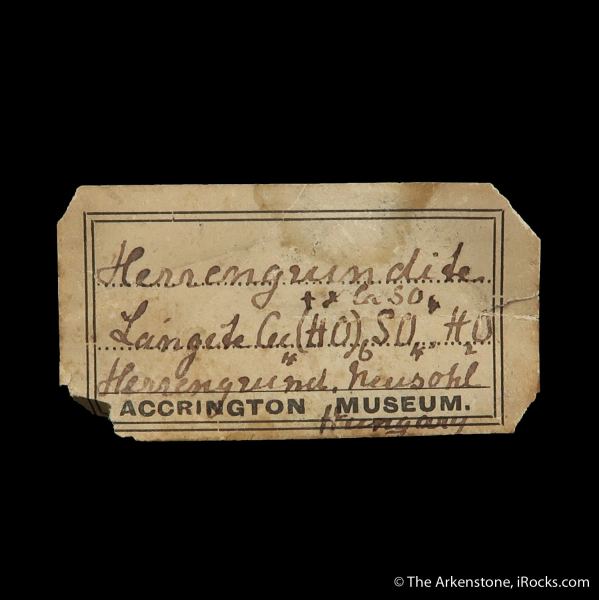 Herrengrundite
+ x CaSO4
Langite Cu4(HO)6SO4.H2O
Herrengrund, Neusohl
ACCRINGTON MUSEUM.
Hungary
© The Arkenstone, iRocks.com